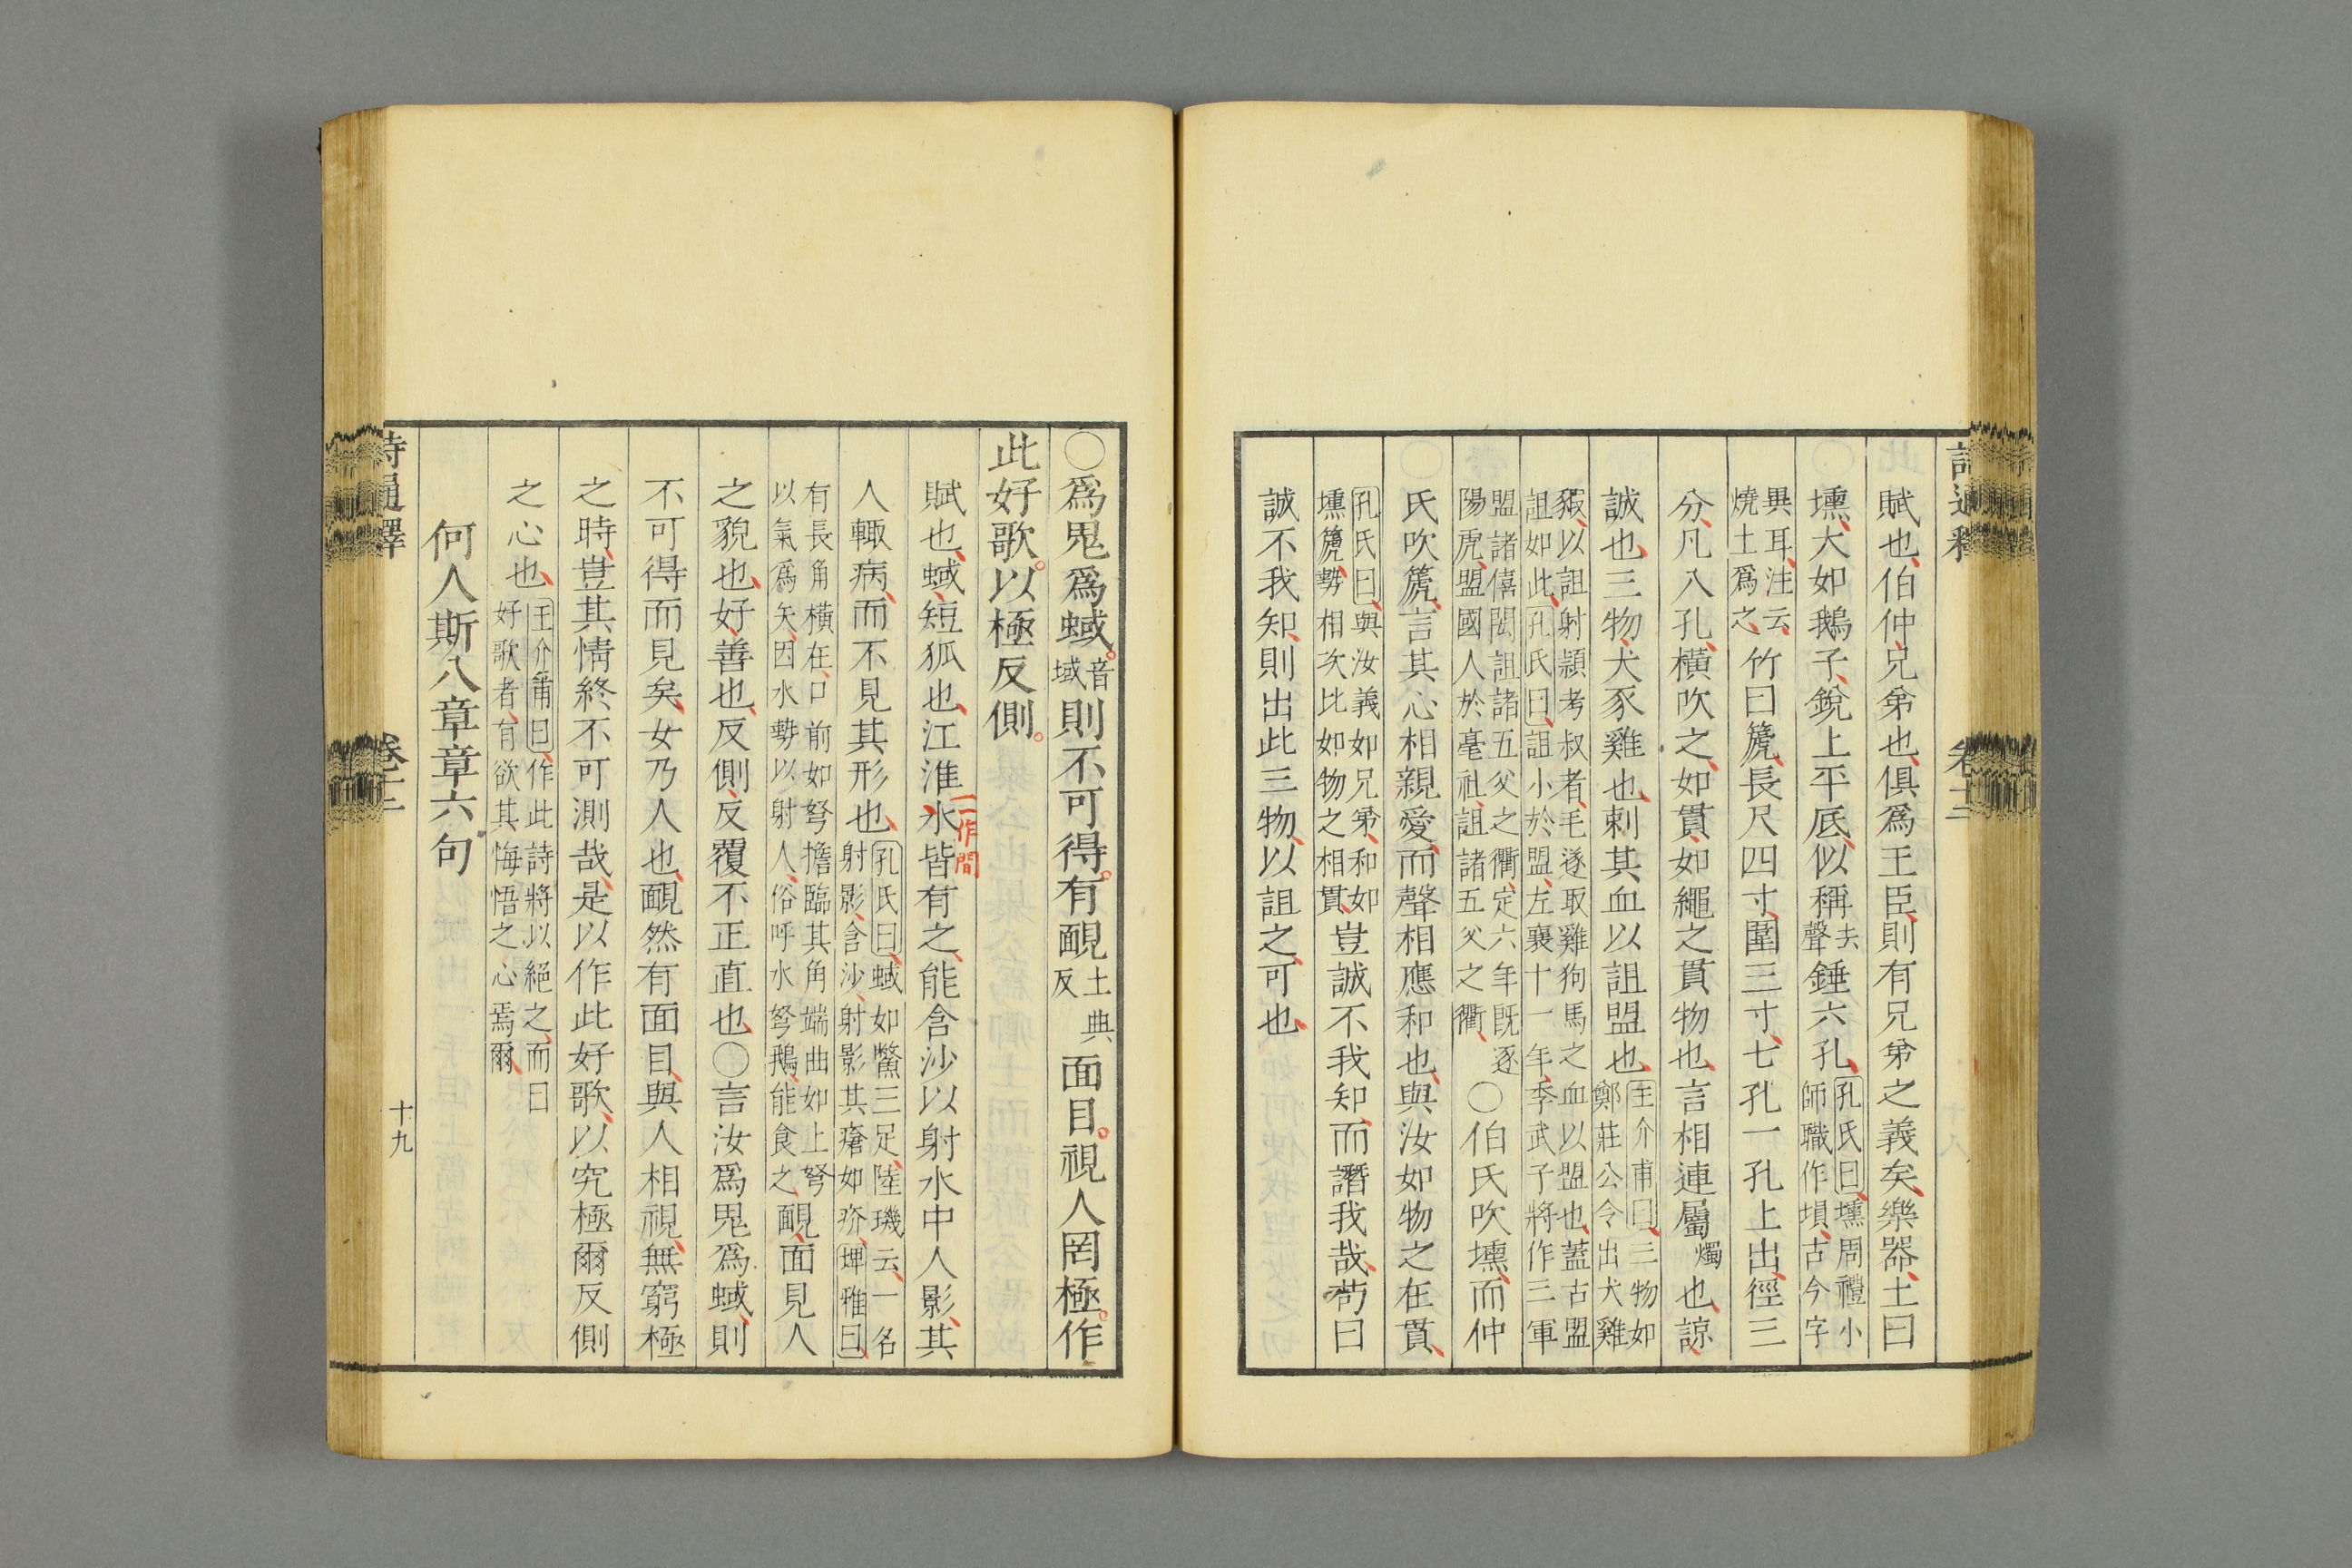 賦也伯仲兄弟也俱爲王臣則有兄弟之義矣樂器土曰
壎大如鵝子銳上平底似稱去聲錘六孔孔氏曰壎周禮小師職作塤古今字
異耳注云燒土爲之竹曰篪長尺四寸圍三寸七孔一孔上出徑三
分凡八孔橫吹之如貫如繩之貫物也言相連屬燭也諒
誠也三物犬豕雞也刺其血以詛盟也王介甫曰三物如鄭莊公令出犬雞
豭以詛射潁考叔者毛遂取雞狗馬之血以盟也蓋古盟詛如此孔氏曰詛小於盟左襄十一年季武子將作三軍
盟諸僖閎詛諸五父之衢定六年旣逐陽虎盟國人於亳社詛諸五父之衢○伯氏吹壎而仲
氏吹篪言其心相親愛而聲相應和也與汝如物之在貫
孔氏曰與汝義如兄弟和如壎篪勢相次比如物之相貫豈誠不我知而譖我哉苟曰
誠不我知則出此三物以詛之可也
○爲鬼爲蜮音域則不可得有靦土典反面目視人罔極作
此好歌以極反側
賦也蜮短狐也江淮水皆有之能含沙以射水中人影其
一作間
人輙病而不見其形也孔氏曰蜮如鱉三足陸璣云一名射影含沙射影其瘡如疥埤雅曰
有長角橫在口前如弩擔臨其角端曲如上弩以氣爲矢因水勢以射人俗呼水弩鵝能食之靦面見人
之貌也好善也反側反覆不正直也○言汝爲鬼爲蜮則
不可得而見矣女乃人也靦然有面目與人相視無窮極
之時豈其情終不可測哉是以作此好歌以究極爾反側
之心也王介甫曰作此詩將以絕之而曰好歌者有欲其悔悟之心焉爾
何人斯八章章六句
十九